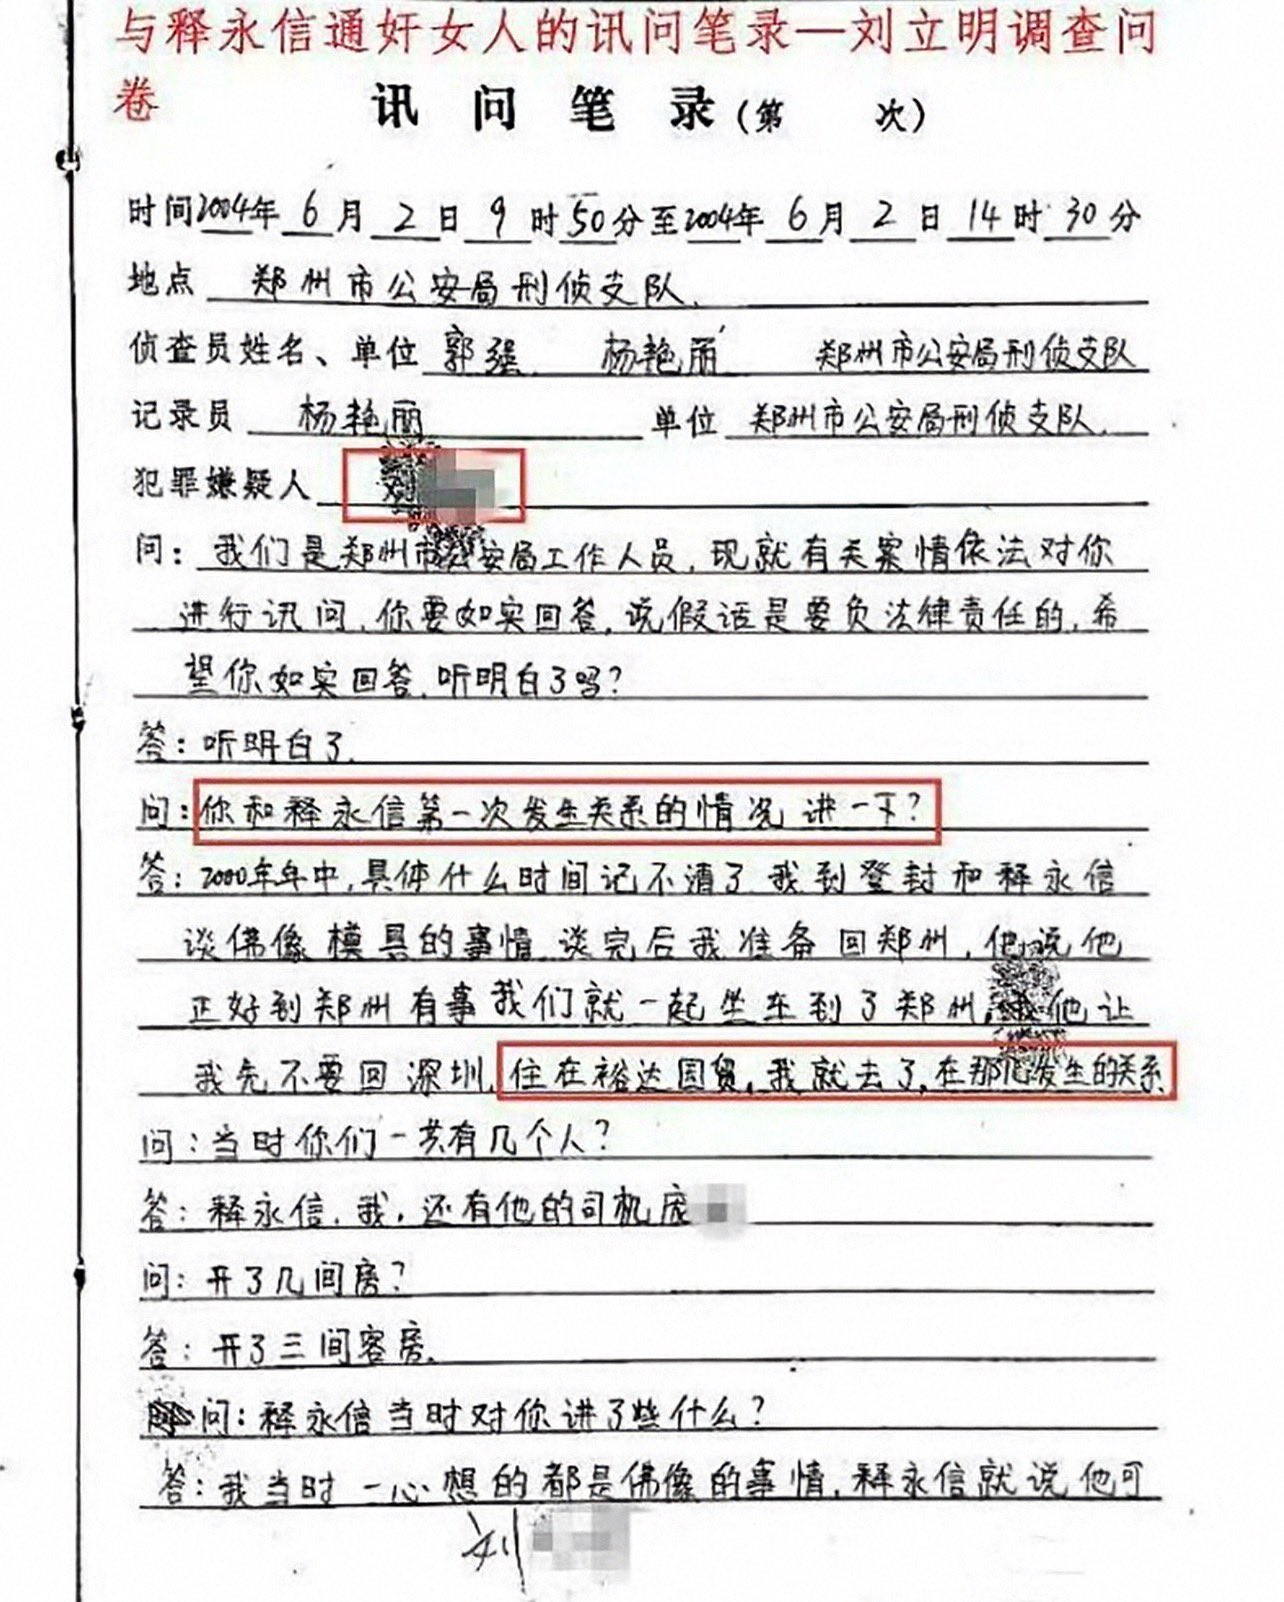 与释永信通奸女人的讯问笔录—刘立明调查问
卷
讯 问 笔 录(第 次)
时间2004年 6 月 2 日 9 时 50 分至 2004年 6 月 2 日 14 时 30 分
地点 郑州市公安局刑侦支队.
侦查员姓名、单位 郭强. 杨艳丽 郑州市公安局刑侦支队
记录员 杨艳丽 单位 郑州市公安局刑侦支队.
犯罪嫌疑人 刘
问: 我们是郑州市公安局工作人员,现就有关案情依法对你
进行讯问,你要如实回答,说假话是要负法律责任的,希
望你如实回答,听明白了吗?
答: 听明白了.
问: 你和释永信第一次发生关系的情况讲一下?
答: 2000年年中,具体什么时间记不清了我到登封和释永信
谈佛像模具的事情.谈完后我准备回郑州,他说他
正好到郑州有事我们就一起坐车到了郑州,他让
我先不要回深圳,住在裕达国贸,我就去了,在那儿发生的关系.
问: 当时你们一共有几个人?
答: 释永信,我,还有他的司机庞
问: 开了几间房?
答: 开了三间客房.
问: 释永信当时对你讲了些什么?
答: 我当时一心想的都是佛像的事情,释永信就说他可
刘